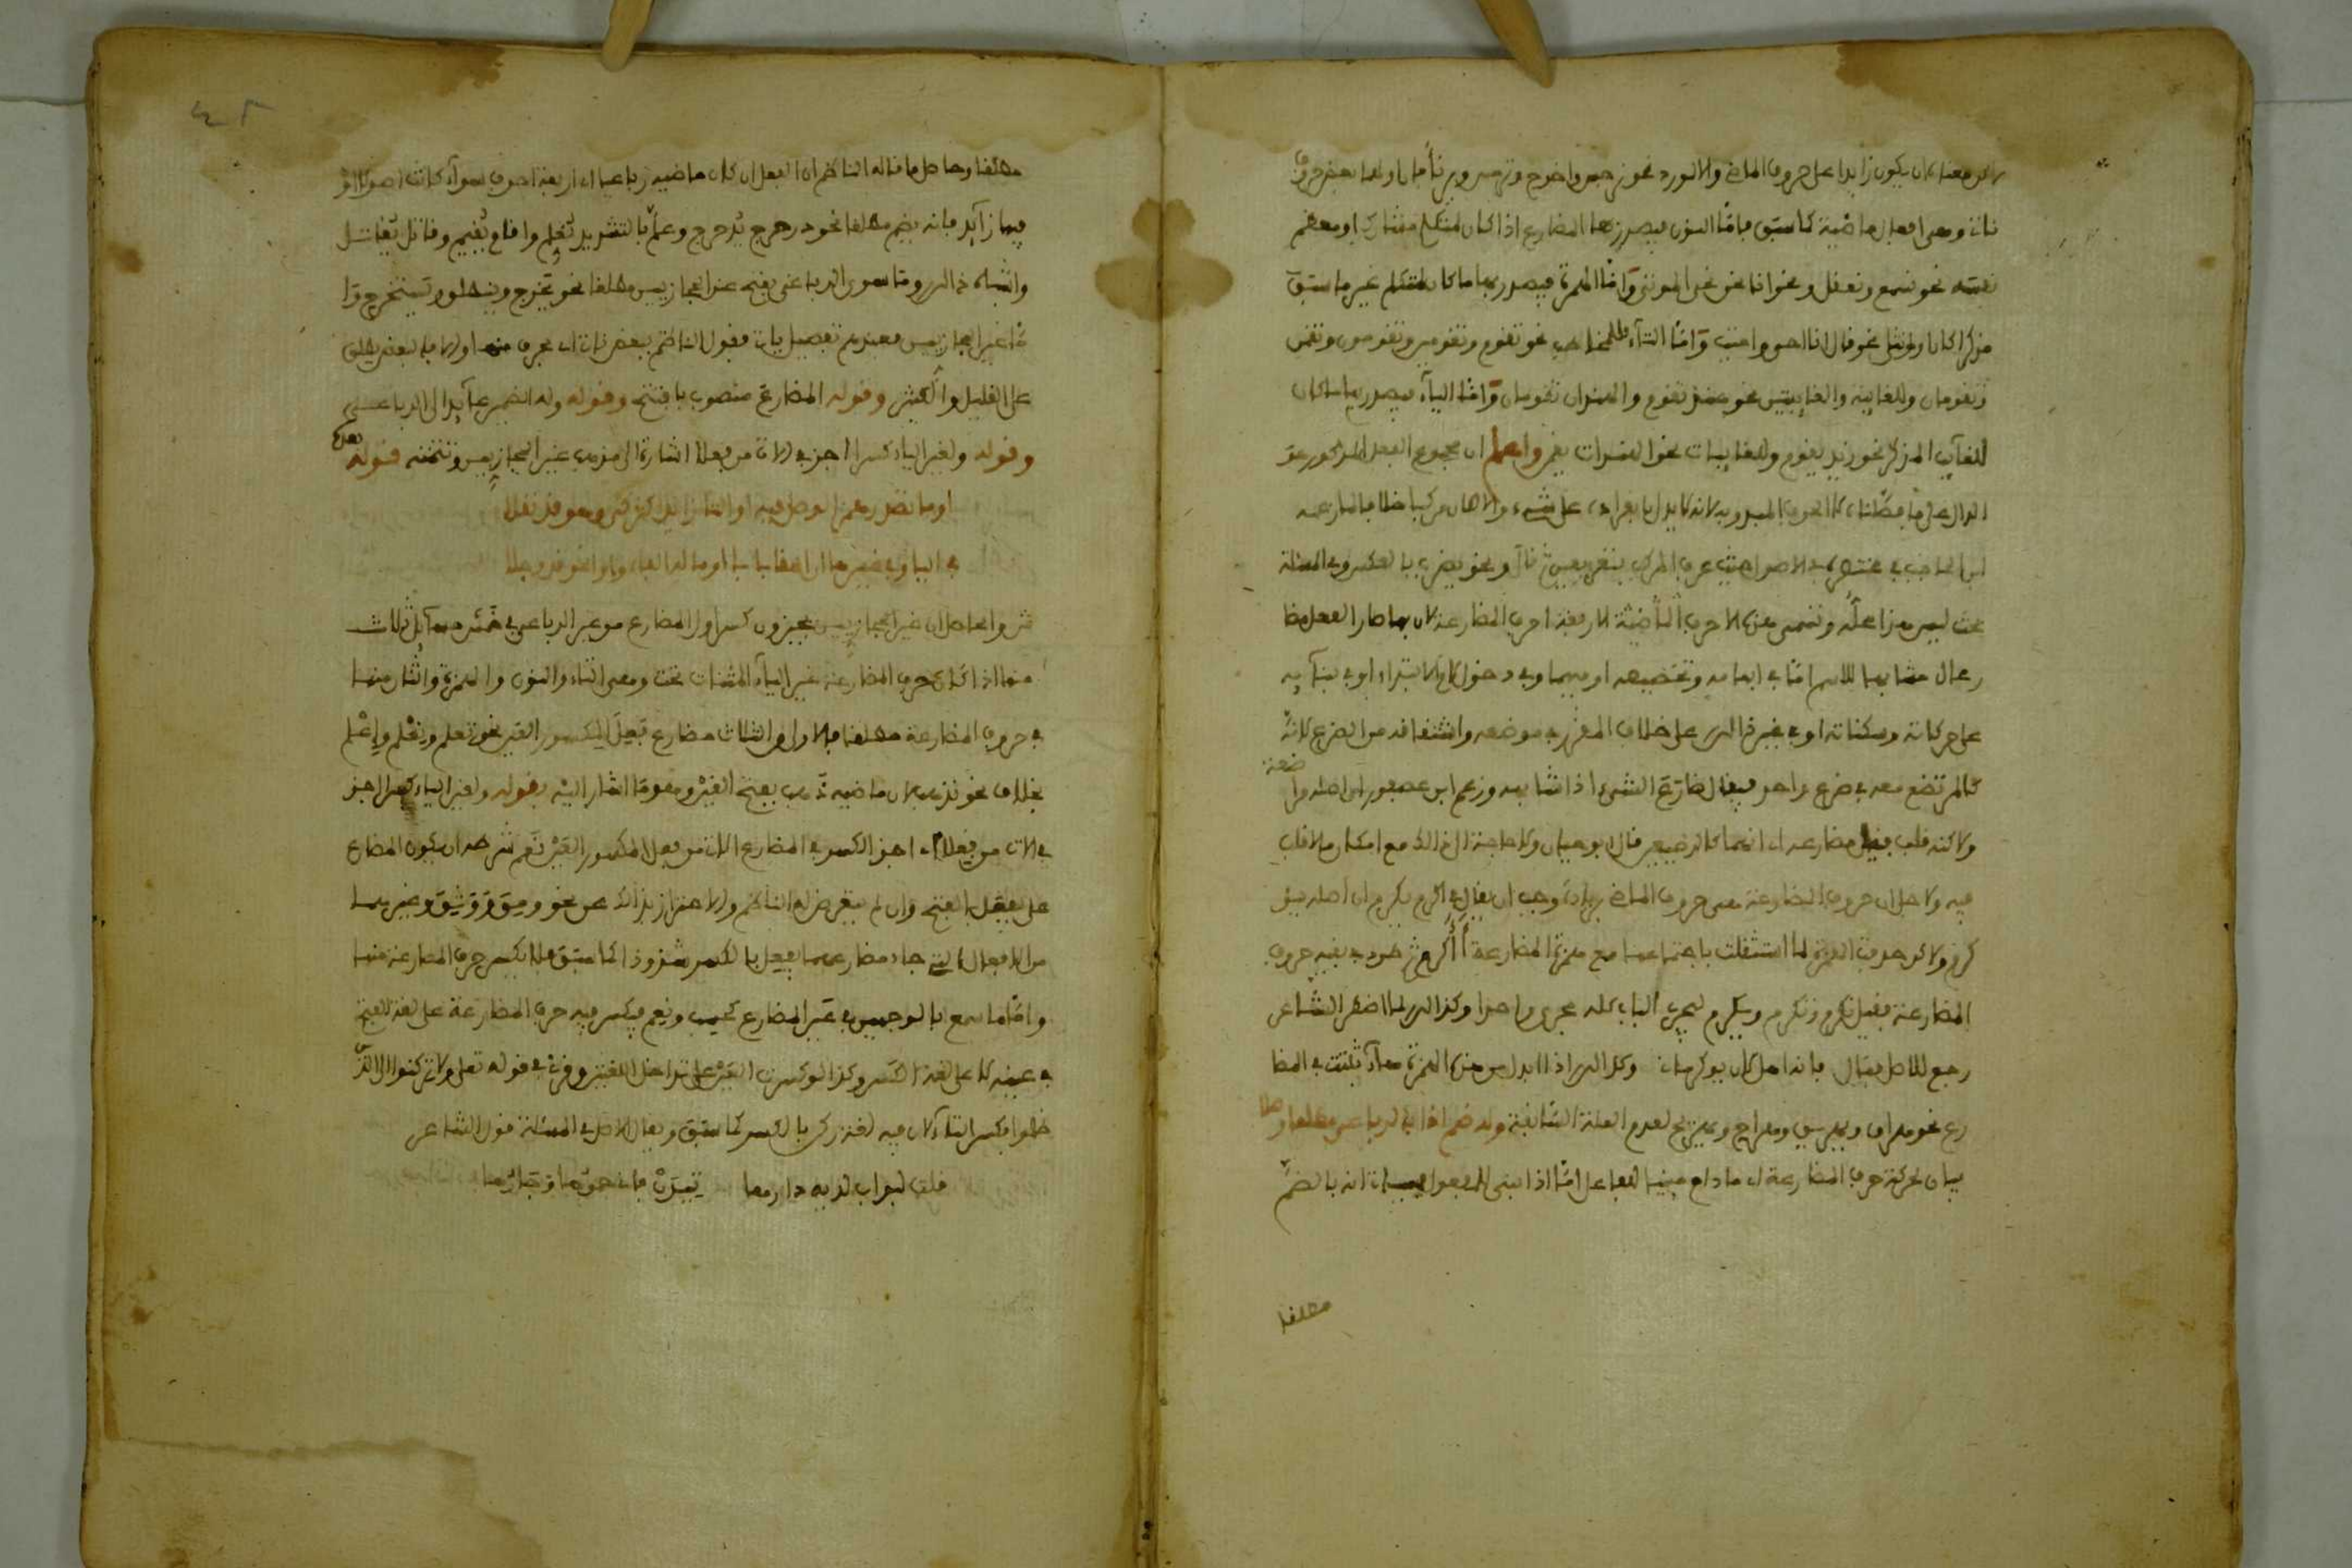 معناه ان يكون زايدا على حروف الماضي والا لورد نحو نرجس واخرج
نات وهي افعال ماضية كما سبق فاما النون فيصدر بها المضارع اذا كان لمتكلم مشارك او معظم
نفسه نحو نسمع ونعقل ونحو انا نحن نحي الموتى واما الهمزة فيصدر بها ما كان لمتكلم غير ما سبق
مذكرا كان او مونثا نحو قال انا احيي واميت واما التاء فللمخاطب نحو تقوم وتقومين وتقومون وتقمن
وتقومان وللغايبة والغايبتين نحو هند تقوم والهندان تقومان واما الياء فيصدر بها ما كان
للغايب المذكر نحو زيد يقوم وللغايبات نحو الهندات يقمن واعلم ان مجموع الفعل المذكور هو
الدال على ما فصلناه لا الحرف المبدو به لانه لا يدل بانفراده على شيء والا كان مركبا خلافا لما زعمه
ابن الحاجب في منتهى الاصول حيث عرف المركب ونحو يضرب بالعكس وفي المسئلة
بحث ليس هذا محله وتسمى هذه الاحرف الناضية الاربعة احرف المضارعة لان بها صار الفعل مضا
رعا اي مشابها للاسم اما في ابهامه وتخصيصه او فيهما وفي دخول لام الابتداء او في بنايه
على حركاته وسكناته او في غير ذالك على خلاف المقرر في موضعه واشتقاقه من الضرع كانه
كالمرتضع معه في ضرع واحد فيقال ضارع الشيء اذا شابهه وزعم ابن عصفور ان اصله مرا
ضعة
ولاكنه قلب فقيل مضارعه اي انهما كالرضيعين قال ابو حيان ولا حاجة الى ذالك مع امكان
فيه ولاجل ان حروف المضارعة هي حروف الماضي بزيادة وجب ان يقال في اكرم يكرم ان اصله يؤ
كرم ولاكن حذفت الهمزة لما استثقلت باجتماعها مع همزة المضارعة أأكرم ثم حمل بقية حروف
المضارعة فقيل نكرم وتكرم ويكرم ليجري الباب كله مجرى واحدا وكذالك لما اضطر الشاعر
رجع للاصل فقال فانه اهل لان يوكرما وكذالك اذا ابدل من هذه الهمزة هاء ثبتت في المضا
رع نحو هراق ويهريق وهراح ويهريح لعدم العلة السابقة وله ضم اذا بالرباعي مطلقا وصلا
بيان لحركة حرف المضارعة اي ما دام مبنيا للفاعل اما اذا بني للمفعول انه بالضم
مطلقا
٤٢
مطلقا وحاصل ما قاله الناظم ان الفعل ان كان ماضيه رباعيا اي اربعة احرف سواء كانت اصولا او
فيها زايد فانه يضم مطلقا نحو دحرج يدحرج وعلم بالتشديد يعلم واقام يقيم وقاتل يقاتل
واشباه ذالك وما سوى الرباعي يفتح عند الحجازيين مطلقا نحو يخرج وينطلق ويستخرج وا
ما غير الحجازيين فعندهم تفصيل يات فقول الناظم ببعض نات اي بحرف منها اولها فالبعض يطلق
على القليل والكثير وقوله المضارع منصوب بافتتح وقوله وله الضمير عايد الى الرباعي
وقوله ولغير الياء كسرا اجز في الات من فعلا اشارة الى مذهب غير الحجازيين وتتمته قوله بعد
او ما تصدر همز الوصل فيه او التا زايدا كتزكى وهو قد نقلا
في اليا وفي غيرها ان الحقا بابى او ما له الفاء واوا نحو قد وجلا
ش والحاصل ان غير الحجازيين يجيزون كسر اول المضارع من غير الرباعي في خمس مسايل ثلاث
منها اذا كان حرف المضارعة غير الياء المثنات تحت وهي التاء والنون والهمزة واثنان منها
في حروف المضارعة مطلقا فالاول من الثلاث مضارع فعل المكسور العين نحو تعلم ونعلم وإعلم
بخلاف نحو تذهب لان ماضيه ذهب بفتح العين وهو ما اشار اليه بقوله ولغير الياء كسرا اجز
في الات من فعلا اي اجز الكسر في المضارع الات من فعل المكسور العين نعم شرطه ان يكون المضارع
على يفعل بالفتح وان لم يتعرض له الناظم والاحتراز بذالك عن نحو ومق ووثق وغيرهما
من الافعال التي جاء مضارعها يفعل بالكسر شذوذا كما سبق فلا يكسر حرف المضارعة منها
واما ما سمع بالوجهين في عين المضارع كحسب ونعم فيكسر فيه حرف المضارعة على لغة الفتح
في عينه لا على لغة الكسر وكذا لو كسرت العين على تداخل اللغتين وقرئ في قوله تعلى ولا تركنوا الى الذين
ظلموا بكسر التاء لان فيه لغة ركن بالكسر كما سبق ويقال الاصل في المسئلة قول الشاعر
قلت لبواب لديه دارها تيذن فاني حموها وجارها